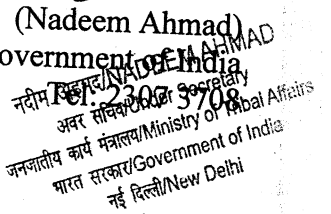 (Nadeem Ahmad)
overnment of India
Tel. 2307 3708
नदीम अहमद/NADEEM AHMAD
अवर सचिव/Under Secretary
जनजातीय कार्य मंत्रालय/Ministry of Tribal Affairs
भारत सरकार/Government of India
नई दिल्ली/New Delhi